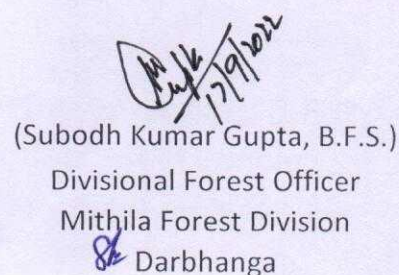 17/9/2022
(Subodh Kumar Gupta, B.F.S.)
Divisional Forest Officer
Mithila Forest Division
Darbhanga